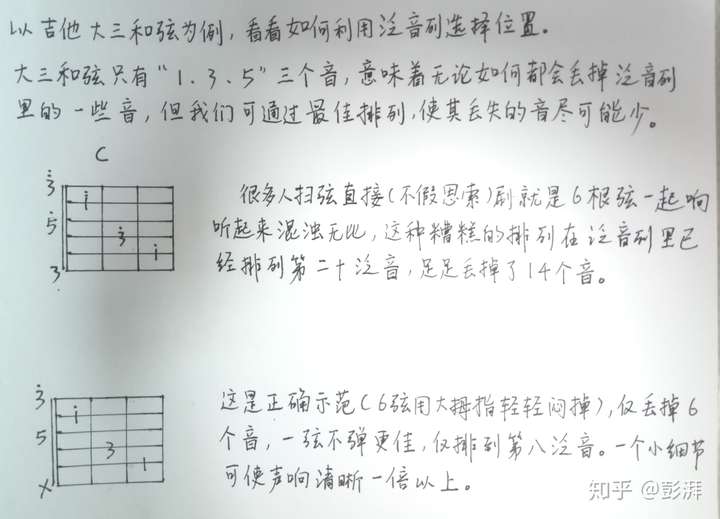 以吉他大三和弦为例，看看如何利用泛音列选择位置。
大三和弦只有“1.3.5”三个音，意味着无论如何都会丢掉泛音列
里的一些音，但我们可通过最佳排列，使其丢失的音尽可能少。
C
3
i
5
3
i
3
很多人扫弦直接(不假思索)刷就是6根弦一起响
听起来混浊无比，这种糟糕的排列在泛音列里已
经排列第二十泛音，足足丢掉了14个音。
3
i
5
3
1
X
这是正确示范(6弦用大拇指轻轻闷掉)，仅丢掉6
个音，一弦不弹更佳，仅排到第八泛音。一个小细节
可使声响清晰一倍以上。
知乎 @彭湃